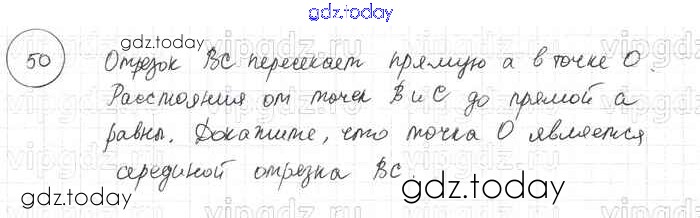 gdz.today
50 Отрезок BC пересекает прямую a в точке O.
gdz.today
Расстояния от точек B и C до прямой a
равны. Докажите, что точка O является
серединой отрезка BC.
gdz.today
gdz.today